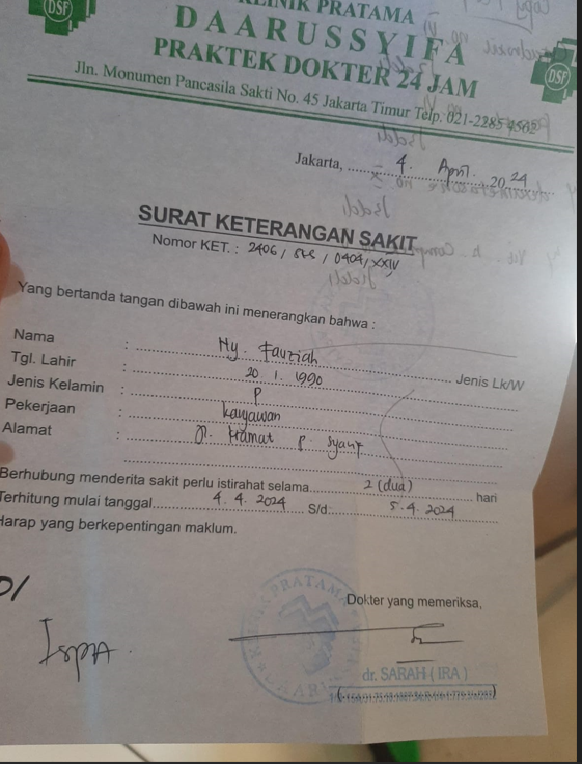 KLINIK PRATAMA
DAARUSSYIFA
PRAKTEK DOKTER 24 JAM
Jln. Monumen Pancasila Sakti No. 45 Jakarta Timur Telp. 021-2285 4562
DSF
DSF
Jakarta, 4. April. 2024
SURAT KETERANGAN SAKIT
Nomor KET. : 2406 / SKS / 0404 / XXIV
Yang bertanda tangan dibawah ini menerangkan bahwa :
Nama : Ny. Fauziah Jenis Lk/W
Tgl. Lahir : 20. 1. 1990
Jenis Kelamin : P
Pekerjaan : Karyawan
Alamat : Jl. Kramat P. Syarif
Berhubung menderita sakit perlu istirahat selama 2 (dua) hari
Terhitung mulai tanggal 4. 4. 2024 S/d: 5. 4. 2024
Harap yang berkepentingan maklum.
Dokter yang memeriksa,
ISPA
PRATAMA
dr. SARAH ( IRA )